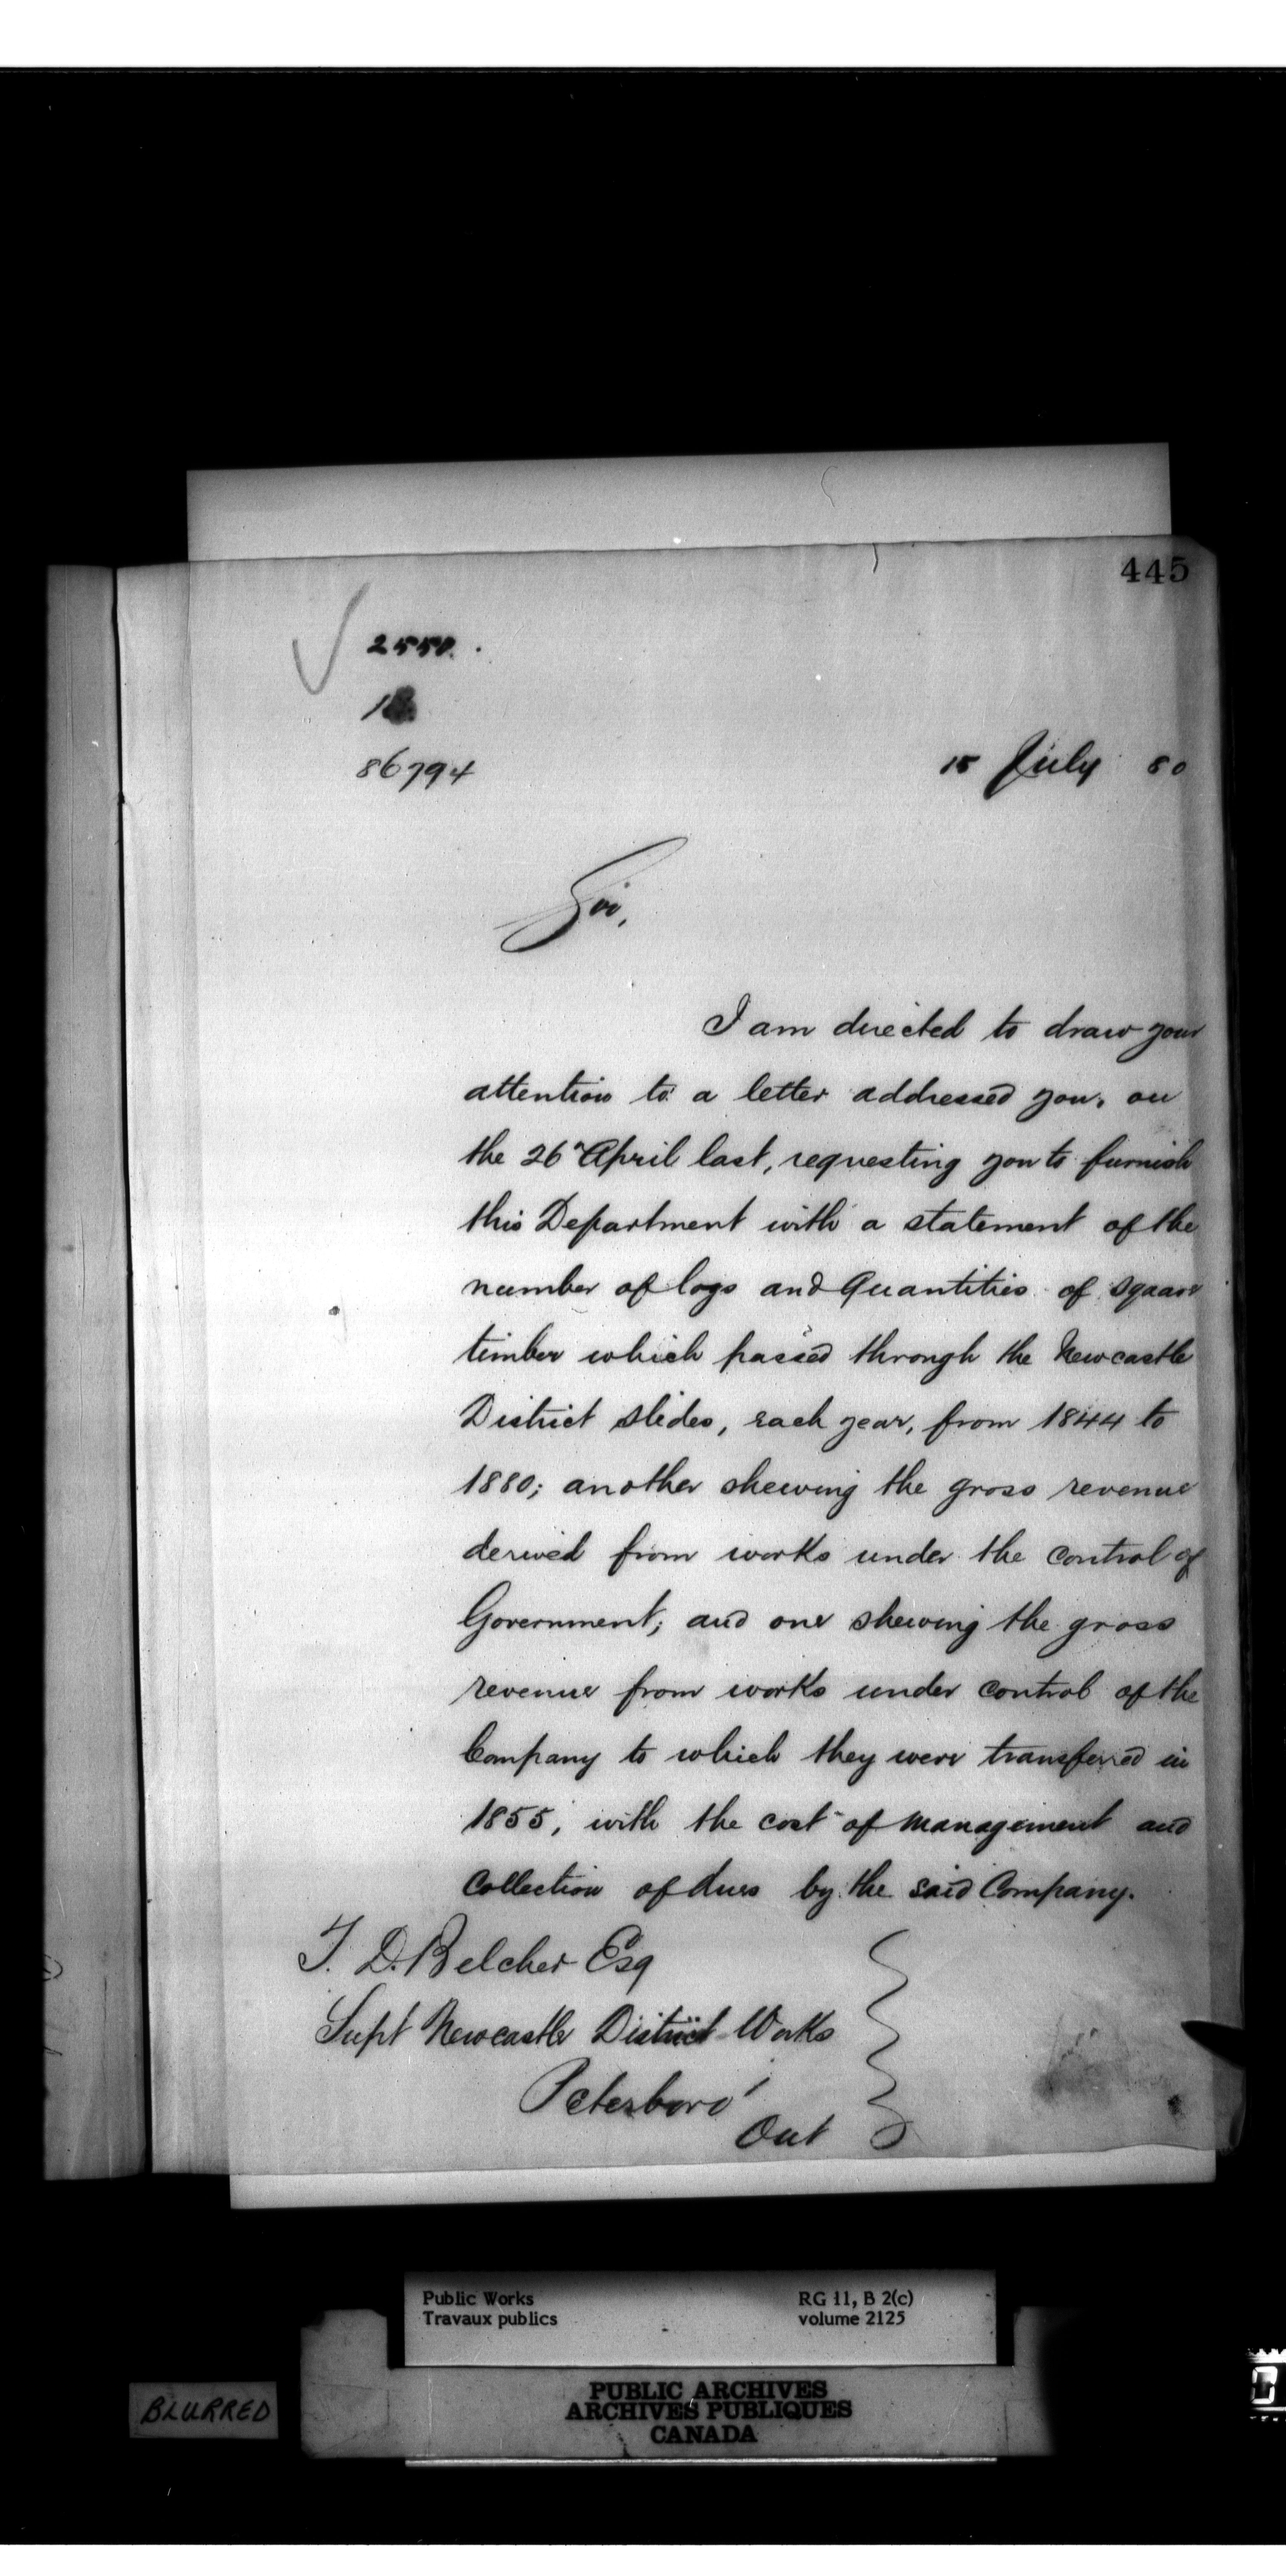 445
2550.
86794
15 July 80
Sir,
I am directed to draw your
attention to a letter addressed you, on
the 26" April last, requesting you to furnish
this Department with a statement of the
number of logs and Quantities of square
timber which passed through the Newcastle
District slides, each year, from 1844 to
1880; another shewing the gross revenue
derived from works under the control of
Government; and one shewing the gross
revenue from works under control of the
Company to which they were transferred in
1855, with the cost of management and
Collection of dues by the said Company.
T. D. Belcher Esq
Supt Newcastle District Works
Peterboro'
Ont
Public Works
Travaux publics
RG 11, B 2(c)
volume 2125
BLURRED
PUBLIC ARCHIVES
ARCHIVES PUBLIQUES
CANADA